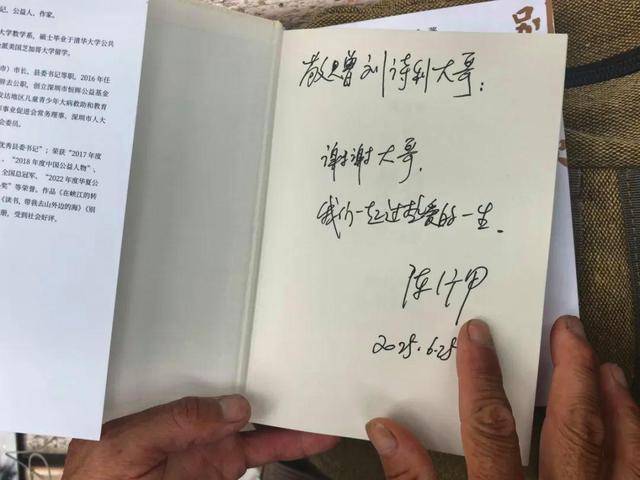 记,公益人,作家。
大学数学系,硕士毕业于清华大学公共
派美国芝加哥大学留学。
市)市长、县委书记等职。2016 年任
辞去公职,创立深圳市恒晖公益基金
发达地区儿童青少年大病救助和教育
事业促进会常务理事、深圳市人大
会委员。
优秀县委书记”;荣获“2017年度
、“2018 年度中国公益人物”、
全国总冠军、“2022 年度华夏公
奖”等荣誉。作品《在峡江的转
《读书,带我去山外边的海》《别
册,受到社会好评。
敬赠刘诗利大哥:
谢谢大哥,
我们一起过热爱的一生。
陈行甲
2025.6.25